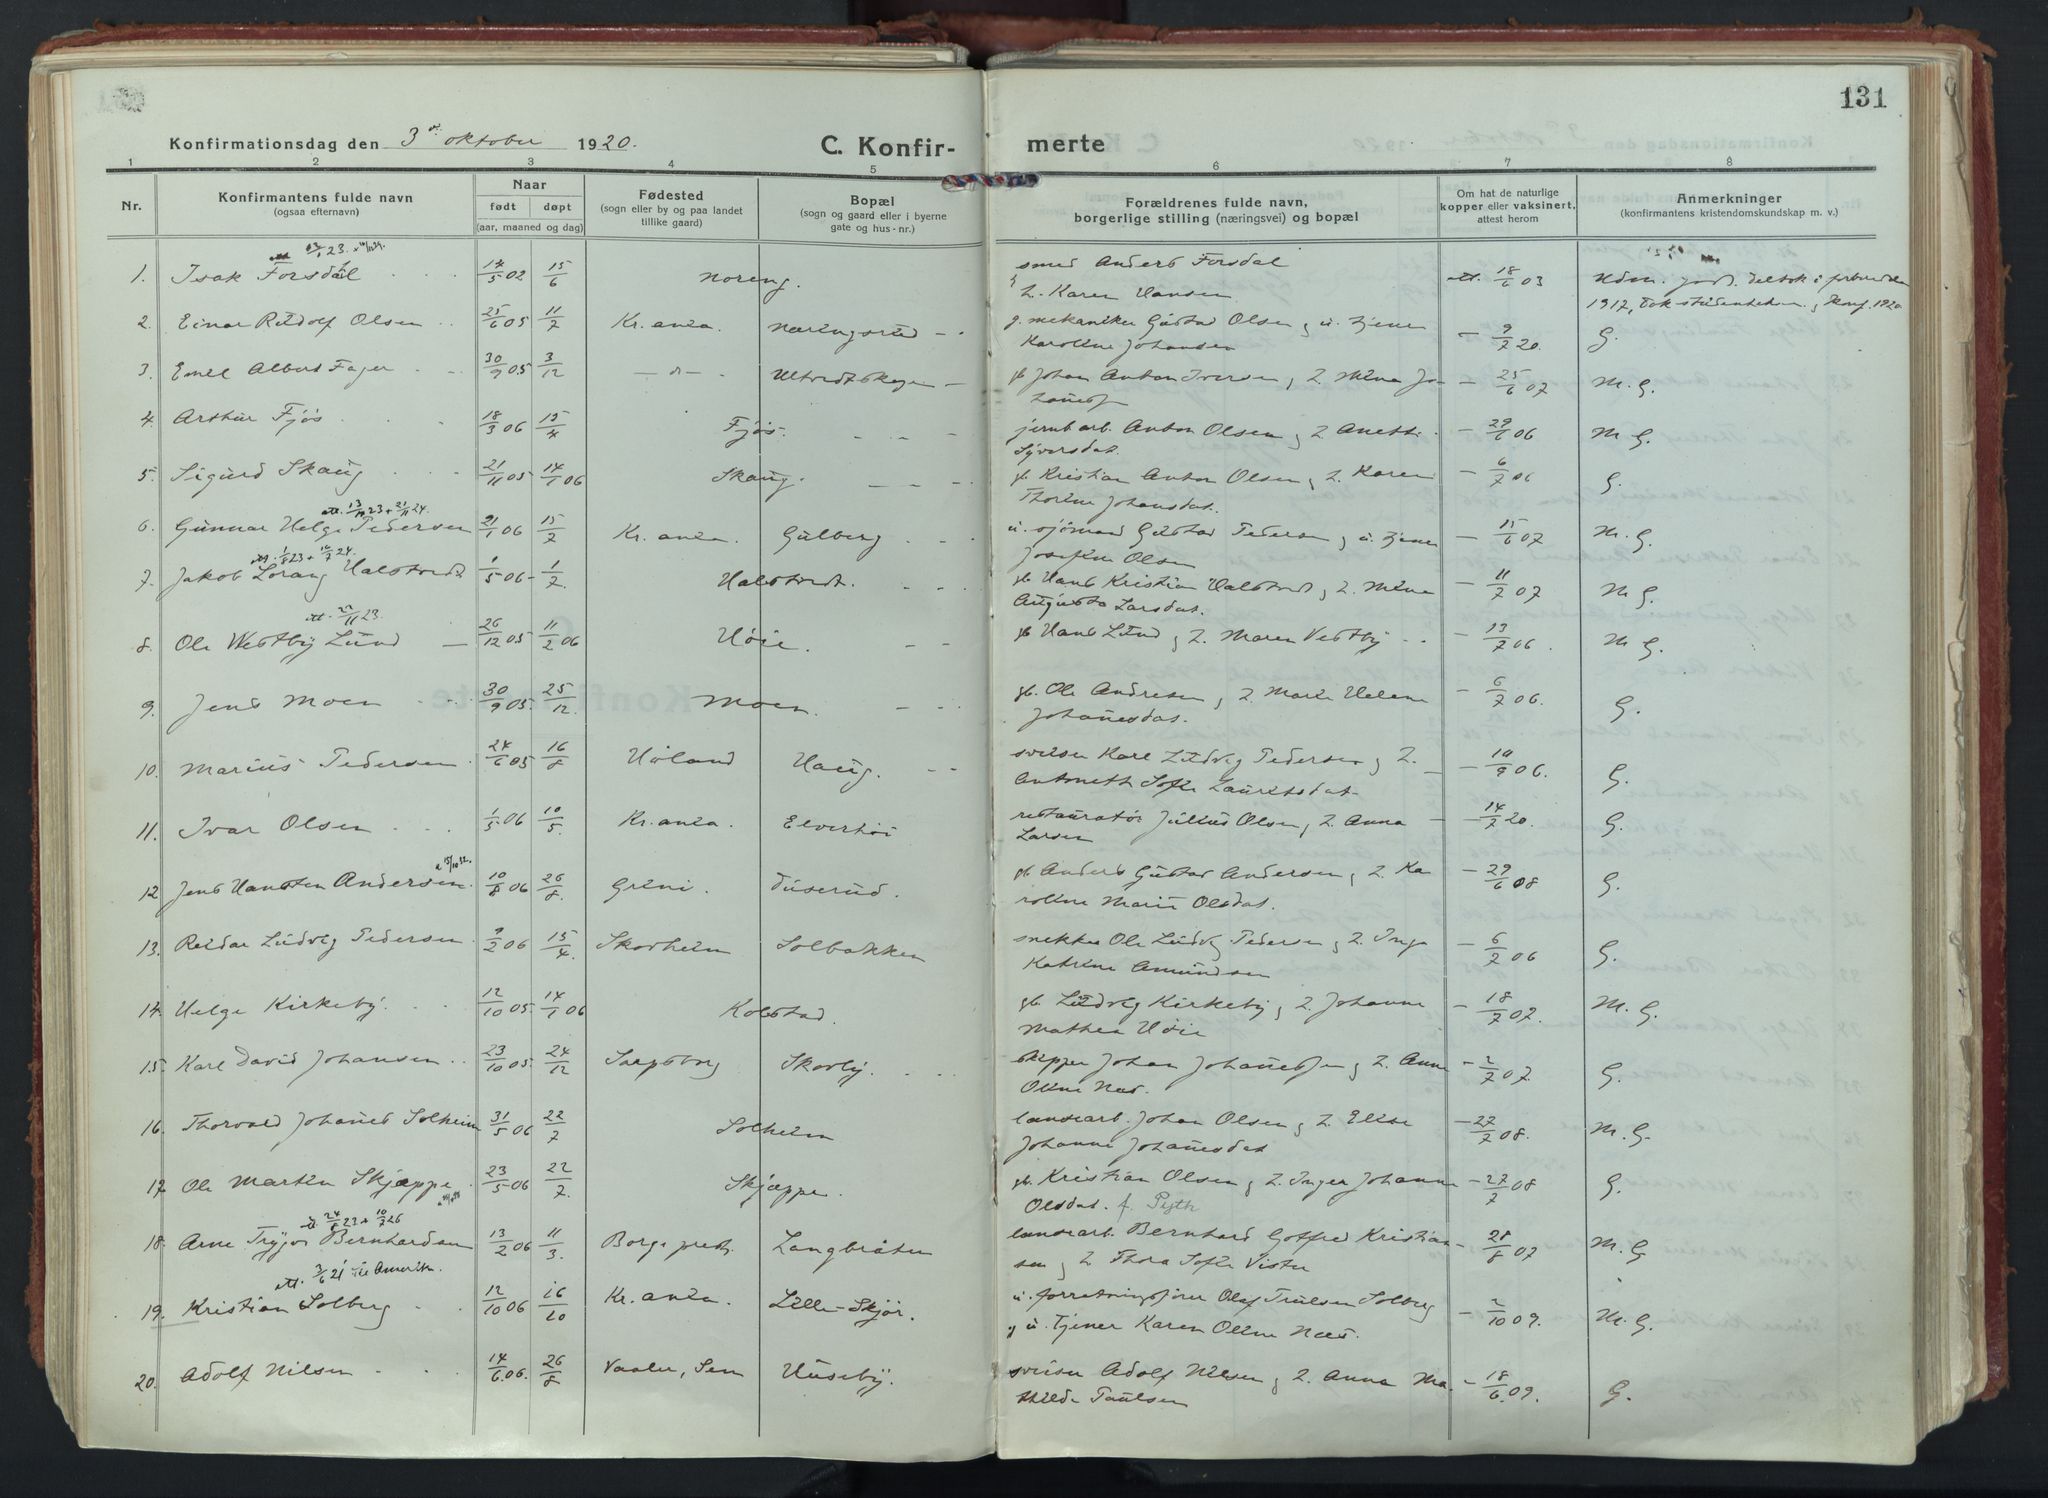 131
Konfirmationsdag den 3 oktober 1920.
C. Konfir-
merte
1 2 3 4 5 6 7 8
Nr.
Konfirmantens fulde navn
(ogsaa efternavn)
Naar
født døpt
(aar, maaned og dag)
Fødested
(sogn eller by og paa landet
tillike gaard)
Bopæl
(sogn og gaard eller i byerne
gate og hus-nr.)
Forældrenes fulde navn,
borgerlige stilling (næringsvei) og bopæl
Om hat de naturlige
kopper eller vaksinert,
attest herom
Anmerkninger
(konfirmantens kristendomskundskap m. v.)
1. Isak Forsdal 14/5 02 15/6 Noreng. smed Anders Forsdal att. 18/6 03
& h. Karen Hansen 1917, konf. 1920
2. Einar Reidolf Olsen 25/6 05 11/7 Kr.ania. Næringsrud g. mekaniker Gustav Olsen & u. tjener 9/7 20. G.
Karoline Johansen
3. Emil Albert Fager 30/9 05 3/12 Johan Anton Iversen & h. Mina Jo- 25/6 07 M. G.
4. Arthur Fjøs 18/3 06 15/4 Fjøs. jernb.arb. Anton Olsen & h. Anette 29/6 06 M G.
Syversdat.
5. Sigurd Skaug 21/11 05 14/1 06 Skaug. gb. Kristian Anton Olsen & h. Karen 6/7 06 G.
Thorine Johansdat.
att. 13/10 23 + 21/11 24.
6. Gunnar Helge Pedersen 21/1 06 15/7 Kr.ania. Gulberg u. sjømand Gustav Pedersen & u. tjener 15/6 07 M. G.
Josefine Olsen
7. Jakob Lorang Halstvedt 1/7 Halstvedt. gb Hans Kristian Halstvedt & h. Mina 11/7 07 M G.
Augusta Larsdat.
att. 22/11 23.
8. Ole Westby Lund 26/12 05 11/2 06 Høie. gb Hans Lund & h. Maren Vestby 13/7 06. M G.
9. Jens Moen 30/9 05. 25/12. Moen. gb. Ole Andresen & h. Marie Helene 6/7 06. G.
Johannesdat.
10. Marius Pedersen 24/6 05 16/8 Høland Haug. sveiser Karl Ludvig Pedersen & h. 10/9 06. G.
Antonette Sofie Lauritsdat.
11. Ivar Olsen 1/5 06 10/5. Kr.ania. Elverhøi restauratør Julius Olsen, h. Anna 14/7 20. G.
Larsen
12. Jens Hansten Andersen 10/8 06 26/8. Grini. Duserud. gb Anders Gustav Andersen & h. Ka 29/6 08 G.
roline Marie Olsdat.
13. Reidar Ludvig Pedersen 9/2 06 15/4. Skovheim Solbakken snekker Ole Ludvig Pedersen & h. Inga 6/7 06 G.
Katrine Amundsen
14. Helge Kirkeby. 12/10 05. 14/1 06 Kolstad. gb. Ludvig Kirkeby & h. Johanne 18/7 07. M. G.
Mathea Høie
15. Karl David Johansen 23/10 05. 24/12 Sarpsborg Skovly. skipper Johan & h. Anne 2/7 07. G.
Oline Næs.
16. Thorvald Johannes Solheim 31/5 06 22/7 Solheim landarb. Johan Olsen & h. Elise 27/7 08. M. G.
Johanne Johannesdat
17. Ole Martin Skjæppe 23/5 06 22/7. Skjæppe. gb. Kristian Olsen & h. Inger Johanne 27/7 08 G.
Olsdat.
att. 24/8 23 + 10/7 26
18. Arne Trygve Bernhardsen 13/2 06 11/3. Borge pred. Langbråten landarb. Bernhard Gotfred Kristian 28/8 07 M. G
sen & h Thora Sofie Vister
att. 3/6 21 til Amerika.
19. Kristian Solberg 12/10 06 16/10 Kr.ania. Lille-Skjør. u. forretningsfører Olaf Trulsen Solberg 2/10 09. M. G.
& u. tjener Karen Oline Næs.
20. Adolf Nilsen 14/6 06. 26/8 Vaaler, Sem Huseby. sveiser Adolf Nilsen & h. Anna Ma- 18/6 09. G.
thilde Paulsen